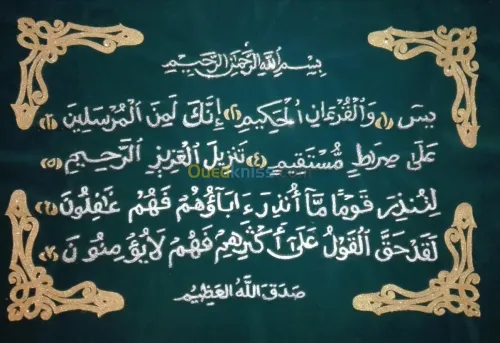 بِسْمِ اللَّهِ الرَّحْمَٰنِ الرَّحِيمِ
يسٓ ﴿١﴾ وَالْقُرْءَانِ الْحَكِيمِ ﴿٢﴾ إِنَّكَ لَمِنَ الْمُرْسَلِينَ ﴿٣﴾
عَلَىٰ صِرَاطٍ مُّسْتَقِيمٍ ﴿٤﴾ تَنزِيلَ الْعَزِيزِ الرَّحِيمِ ﴿٥﴾
Ouedkniss.com
لِتُنذِرَ قَوْمًا مَّآ أُنذِرَ ءَابَآؤُهُمْ فَهُمْ غَٰفِلُونَ ﴿٦﴾
لَقَدْ حَقَّ الْقَوْلُ عَلَىٰٓ أَكْثَرِهِمْ فَهُمْ لَا يُؤْمِنُونَ ﴿٧﴾
صَدَقَ اللَّهُ الْعَظِيمُ